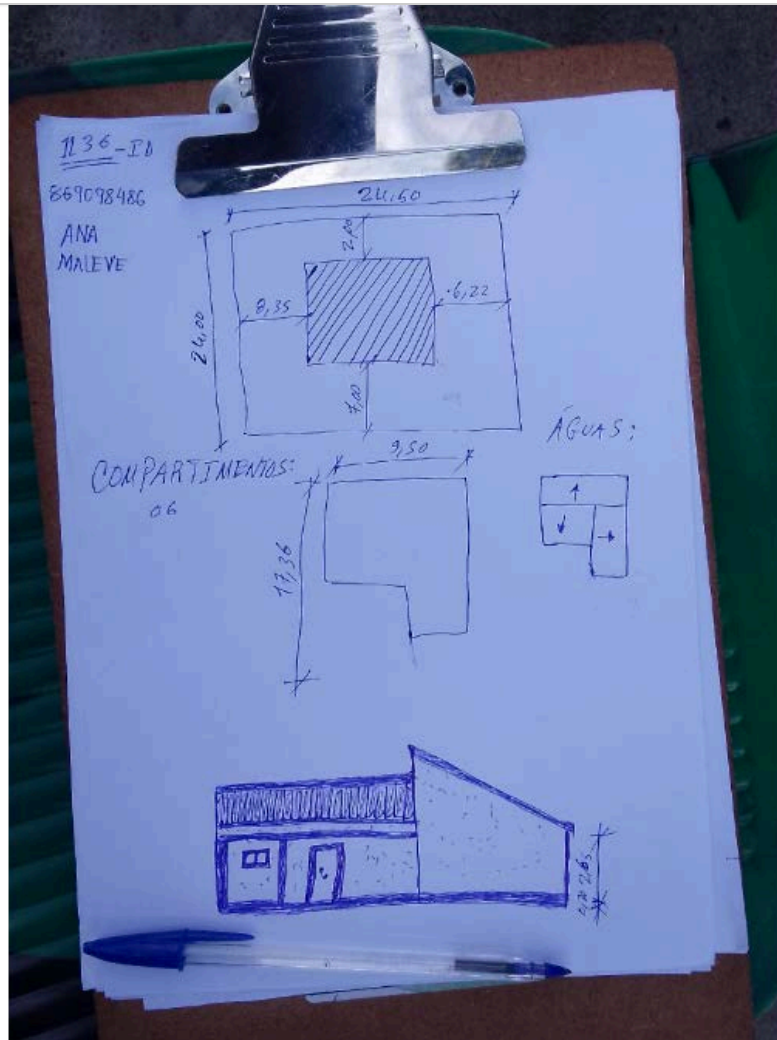 1136-ID
869098486
ANA
MALEVE
24,60
2,00
8,35
6,22
24,00
7,00
ÁGUAS:
COMPARTIMENTOS:
06
9,50
17,36
2,65